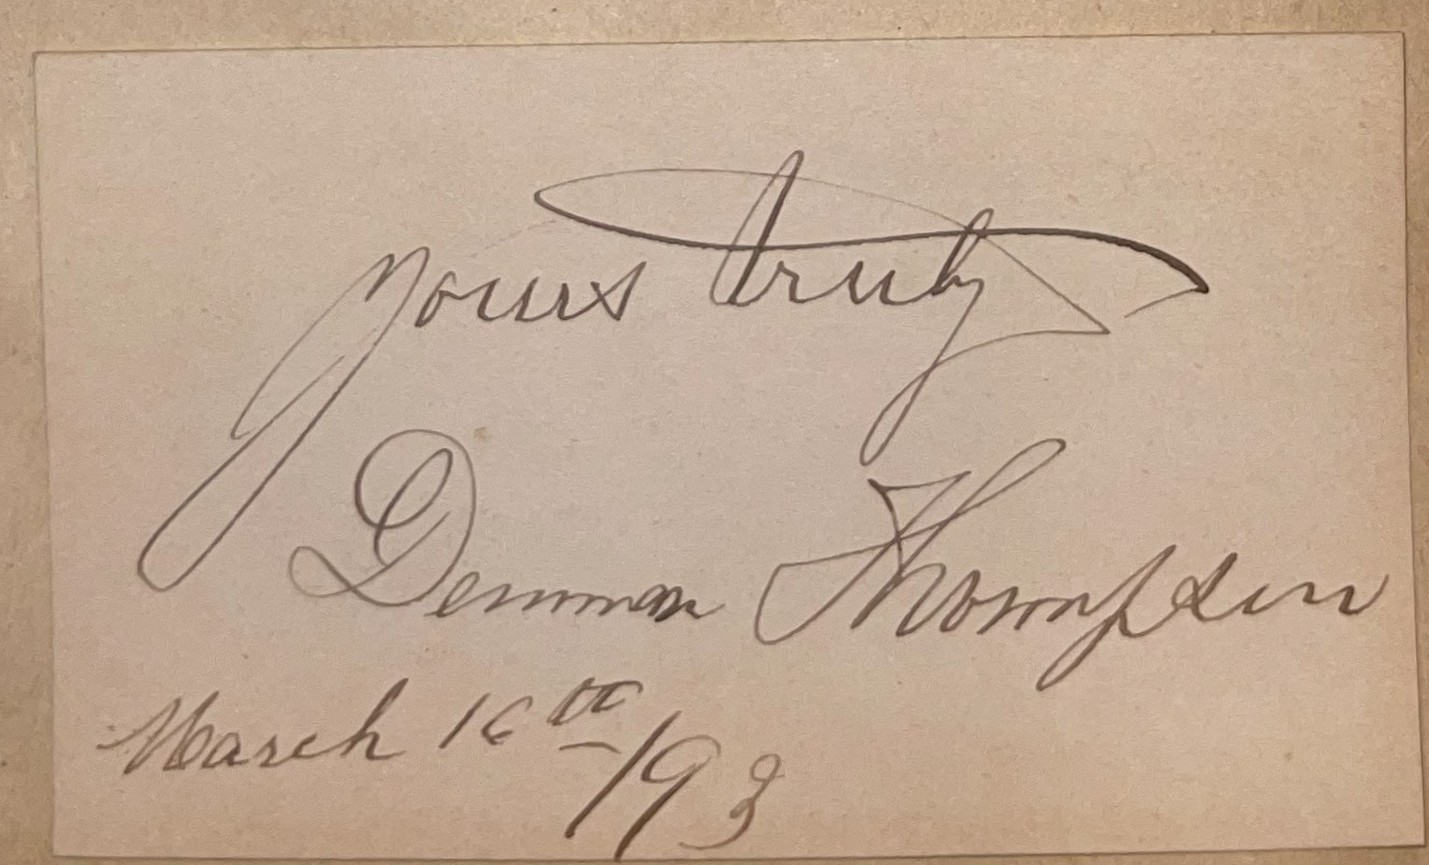 Yours truly
Denman Thompson
March 16th /93